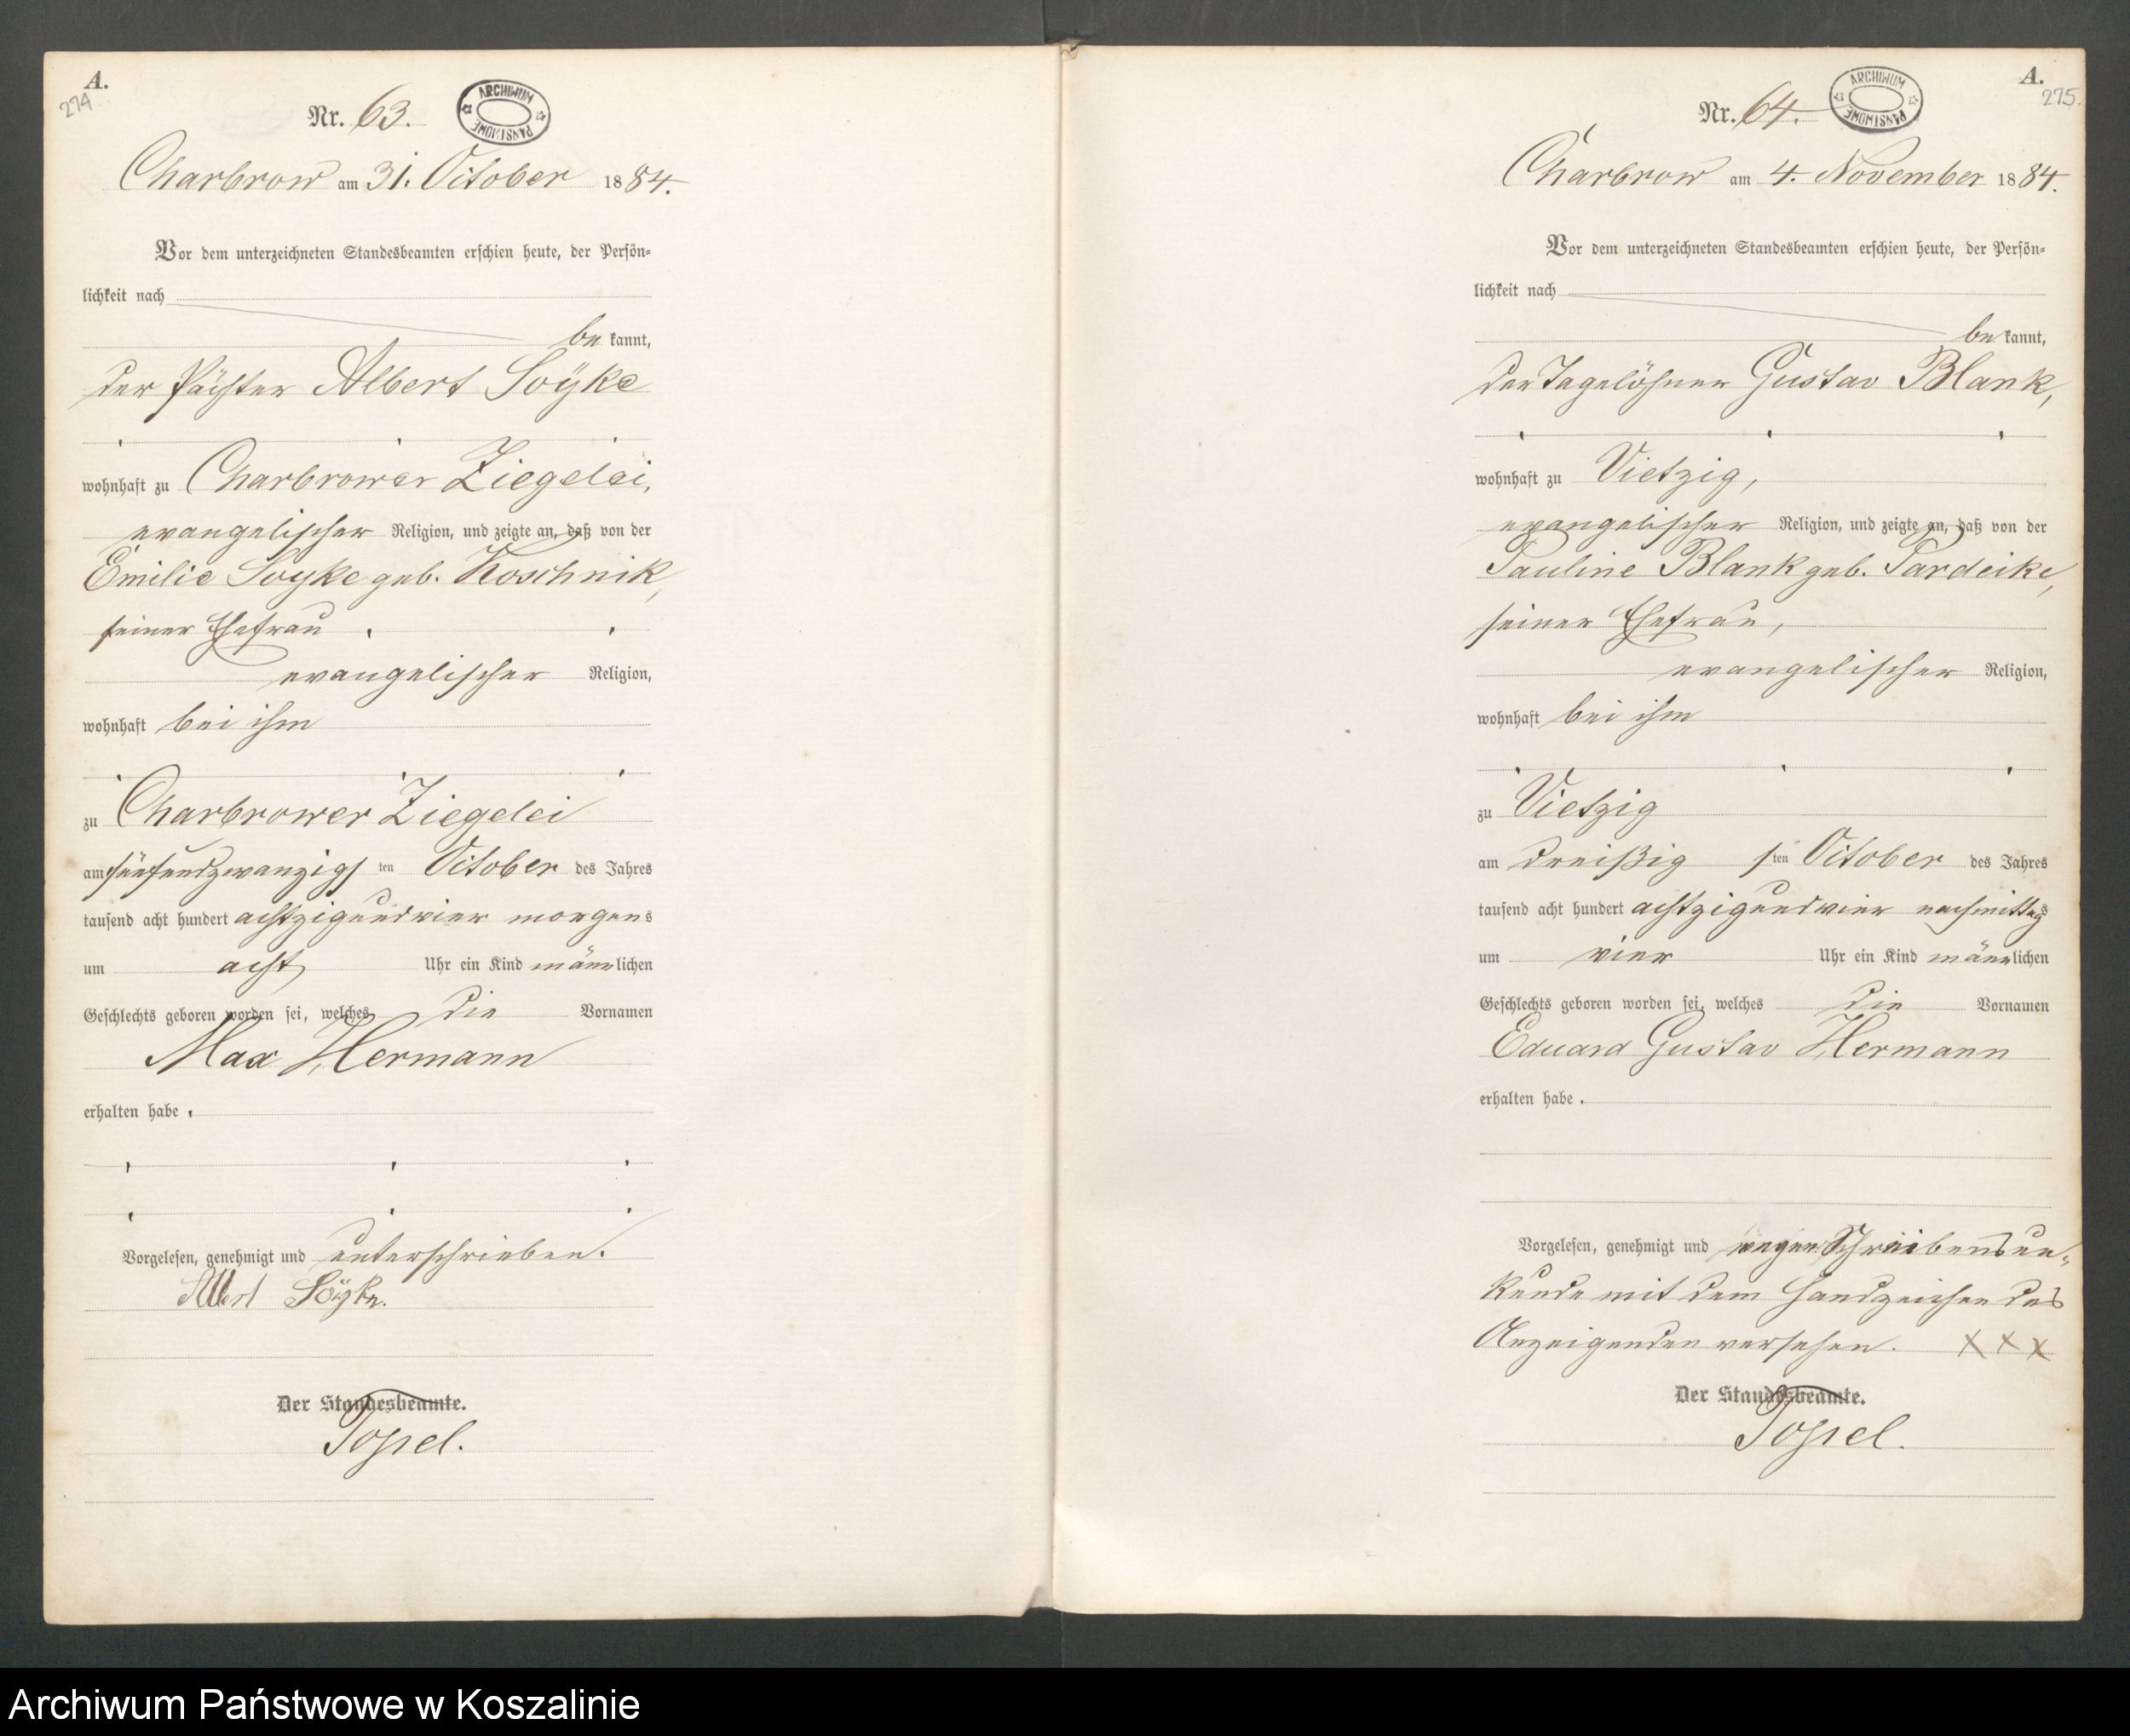 A.
274
Nr. 63.
ARCHIWUM PAŃSTWOWE
Charbrow am 31. October 1884.
Vor dem unterzeichneten Standesbeamten erschien heute, der Persön-
lichkeit nach
be kannt,
der Pächter Albert Soÿke
wohnhaft zu Charbrower Ziegelei,
evangelischer Religion, und zeigte an, daß von der
Emilie Soyke geb. Koschnik,
seiner Ehefrau
evangelischer Religion,
wohnhaft bei ihm
zu Charbrower Ziegelei
am fünfundzwanzigs ten October des Jahres
tausend acht hundert achtzigundvier morgens
um acht Uhr ein Kind männlichen
Geschlechts geboren worden sei, welches die Vornamen
Max Hermann
erhalten habe.
Vorgelesen, genehmigt und unterschrieben.
Albert Soÿke.
Der Standesbeamte.
A.
275.
Nr. 64.
ARCHIWUM PAŃSTWOWE
Charbrow am 4. November 1884.
Vor dem unterzeichneten Standesbeamten erschien heute, der Persön-
lichkeit nach
be kannt,
der Tagelöhner Gustav Blank,
wohnhaft zu Vietzig,
evangelischer Religion, und zeigte an, daß von der
Pauline Blank geb. Pardeike,
seiner Ehefrau,
evangelischer Religion,
wohnhaft bei ihm
zu Vietzig
am dreißig sten October des Jahres
tausend acht hundert achtzigundvier nachmittags
um vier Uhr ein Kind männlichen
Geschlechts geboren worden sei, welches die Vornamen
Eduard Gustav Hermann
erhalten habe.
Vorgelesen, genehmigt und wegen Schreibensun-
kunde mit dem Handzeichen des
Anzeigenden versehen. X X X
Der Standesbeamte.
Archiwum Państwowe w Koszalinie